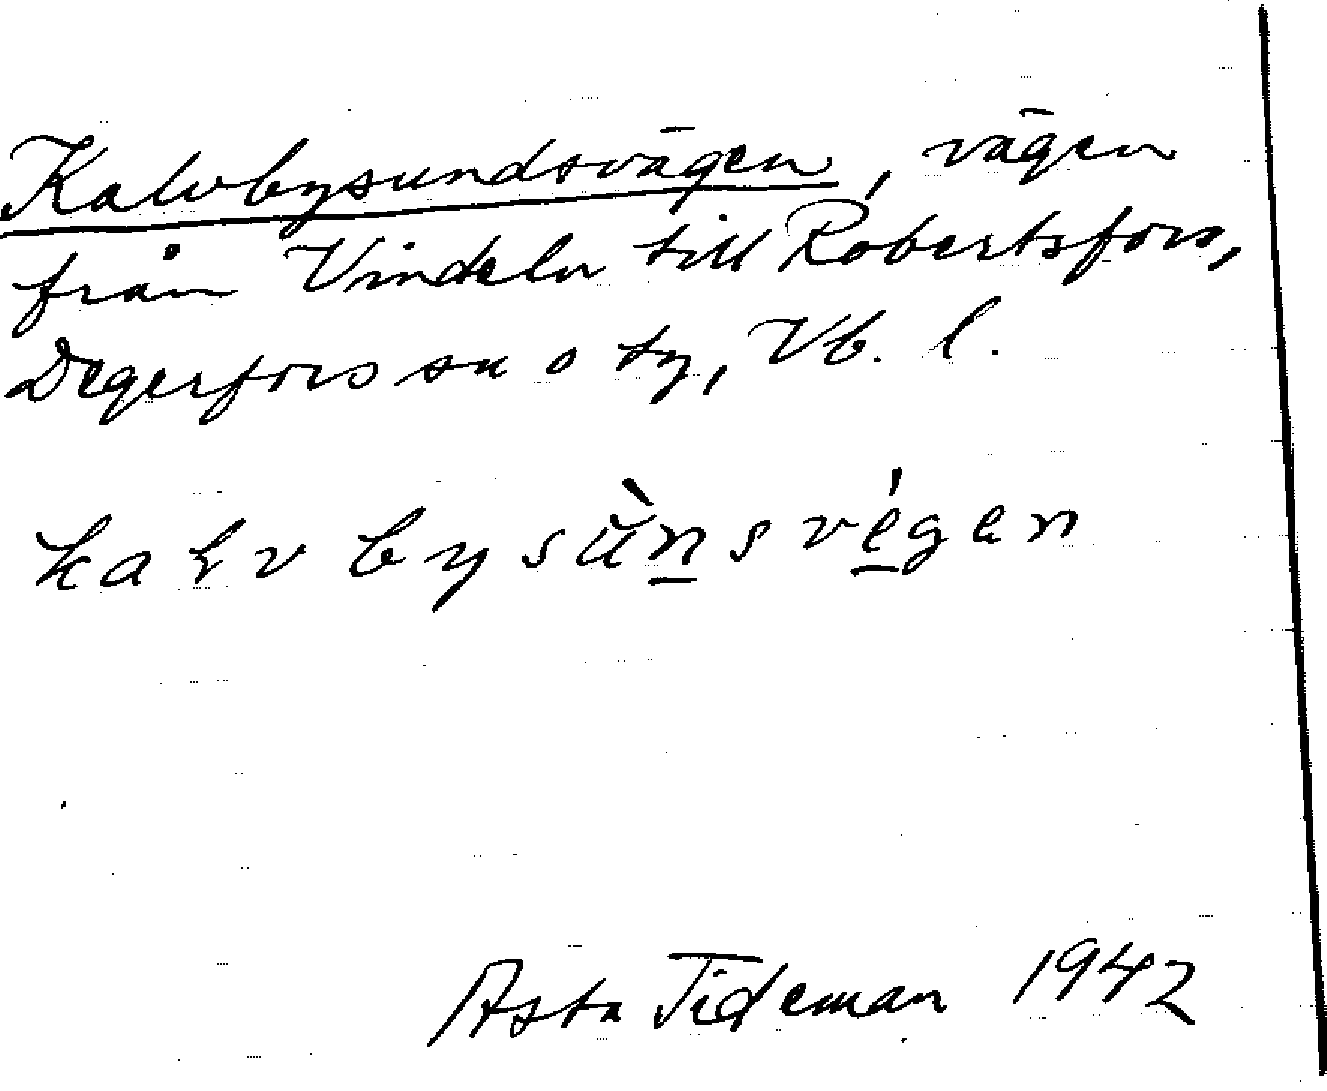 Kalvbysundsvägen, vägen
från Vindeln till Robertsfors,
Degerfors sn o tg, Vb. l.
kaɽvbysùnsvégen
Asta Tideman 1942